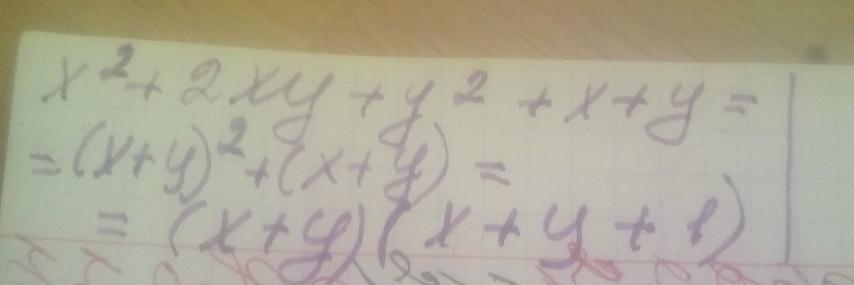 x² + 2xy + y² + x + y =
= (x+y)² + (x+y) =
= (x+y)(x+y+1)